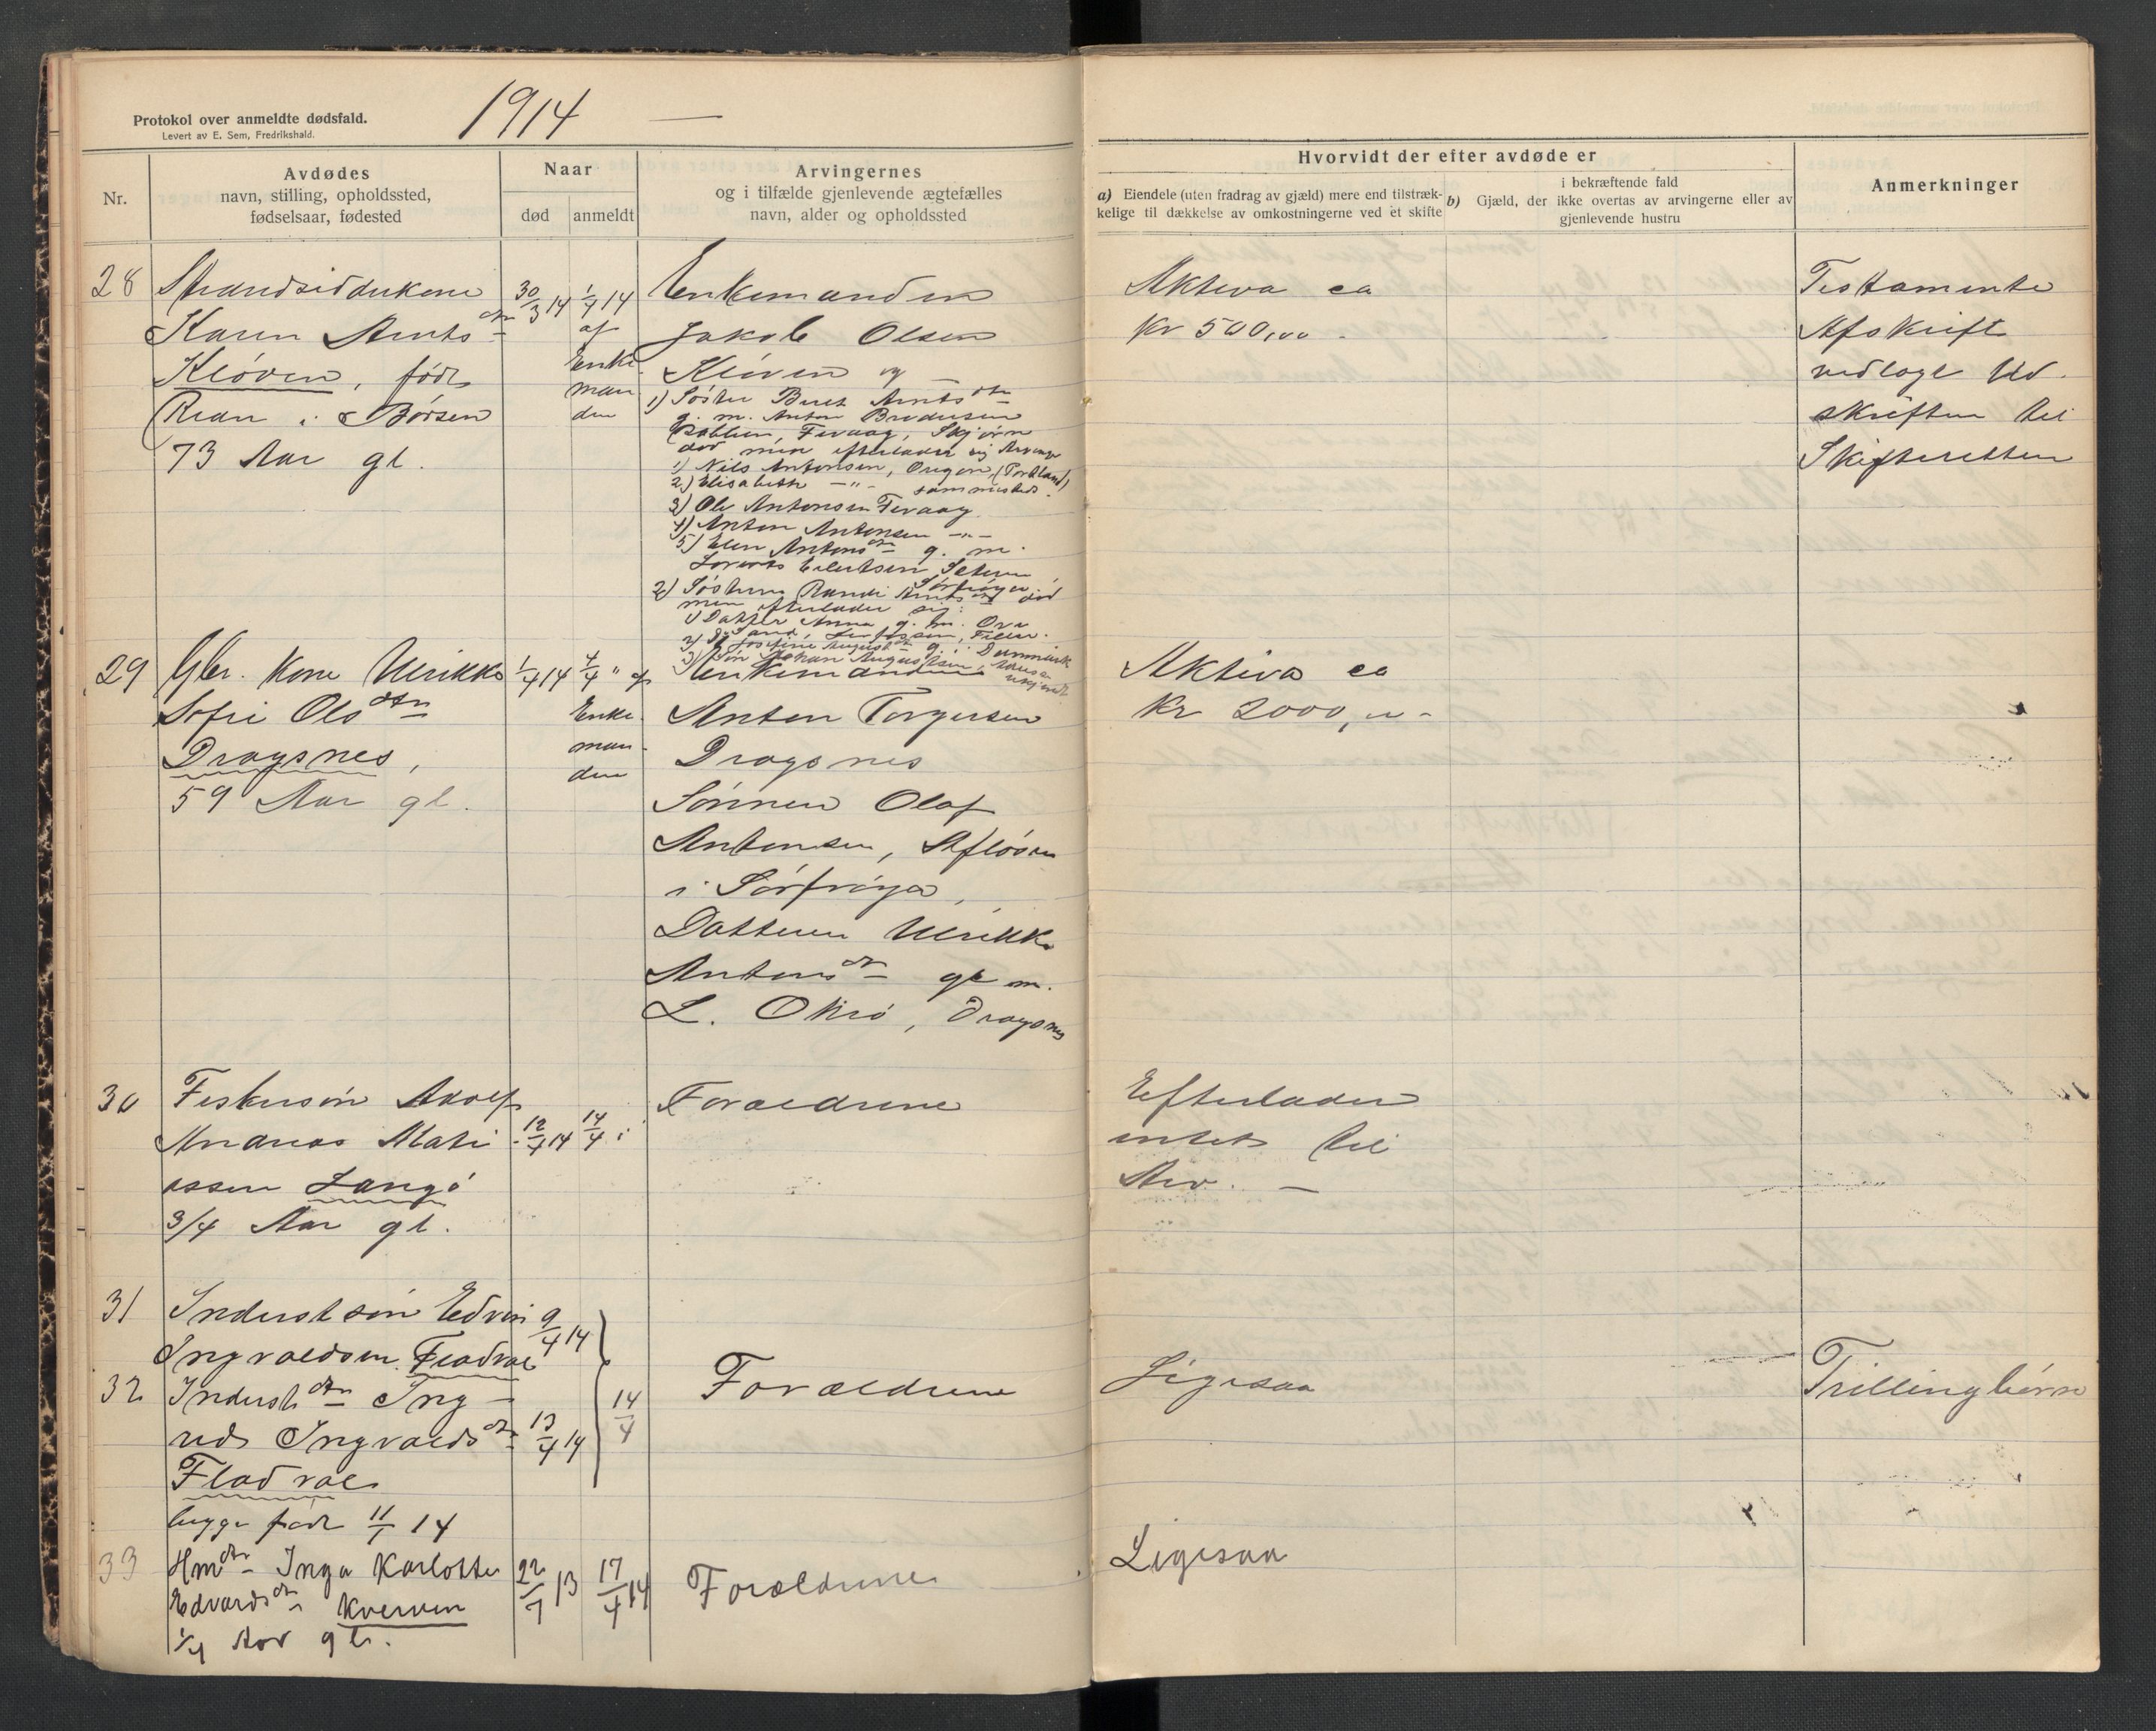 1914 —
Protokol over anmeldte dødsfald.
Levert av E. Sem, Fredrikshald.
Nr.
Avdødes
navn, stilling, opholdssted,
fødselsaar, fødested
Naar
død
anmeldt
Arvingernes
og i tilfælde gjenlevende ægtefælles
navn, alder og opholdssted
Hvorvidt der efter avdøde er
a) Eiendele (uten fradrag av gjæld) mere end tilstræk-
kelige til dækkelse av omkostningerne ved et skifte
i bekræftende fald
b) Gjæld, der ikke overtas av arvingerne eller av
gjenlevende hustru
Anmerkninger
28
Strandsidderkone
Karen Arntsdtr
Kløven, født
Rian i Børsen
73 Aar gl.
30/3 14
1/4 14
af
Enke
man
den
Enkemanden
Jakob Olsen
Kløven og
1) Søster Beret Arntsdtr
g. m. Anton Brodersen
Fevaag, Skjørn
død men efterlader sig Arvinge
1) Nils Antonsen, Oregon, (Portland)
2) Elisabeth —"— sammesteds.
3) Ole Antonsen Fevaag
4) Anton Antonsen —"—
5) Elen Antonsdtr g. m.
Lorents Eilertsen
Sørfrøya.
2) Søsteren Randi Arntsdtr død
men efterlader sig:
1) Datter Anna g. m.
2) Josefine Augustdtr g. i Danmark
3) Søn Johan Augustsen,
Aktiva ca
Kr 500,00 -
Testamente
Afskrift
vedlagt Ud-
skriften til
Skifteretten
29
Gbr. kone Ulrikke
Sofie Olsdtr
Dragsnes,
59 Aar gl.
1/4 14
4/4 " af
Enke-
man-
den
Enkemanden
Anton Torgersen
Dragsnes
Sønnen Olaf
Antonsen, Afløsen
i Sørfrøya,
Datteren Ulrikke
Antonsdtr gt m.
L. Okrø, Dragsnes
Aktiva ca
Kr 2000,"-
30
Fiskersøn Adolf
Andreas Mati-
assen Langø
3/4 Aar gl.
12/4 14
14/4
Forældrene
Efterlader
intet til
Arv. —
31
Inderstsøn Edvin
Ingvaldsen Fladval
9/4 14
32
Inderstdtr Ing-
rid Ingvaldsdtr
Fladval
begge født 11/1 14
13/4 14
14/4
Forældrene
Ligesaa
Trillingbørn
33
Hmdtr Inga Karlotte
Edvardsdtr Kverven
1/4 Aar gl.
22/7 13
17/4 14
Forældrene
Ligesaa